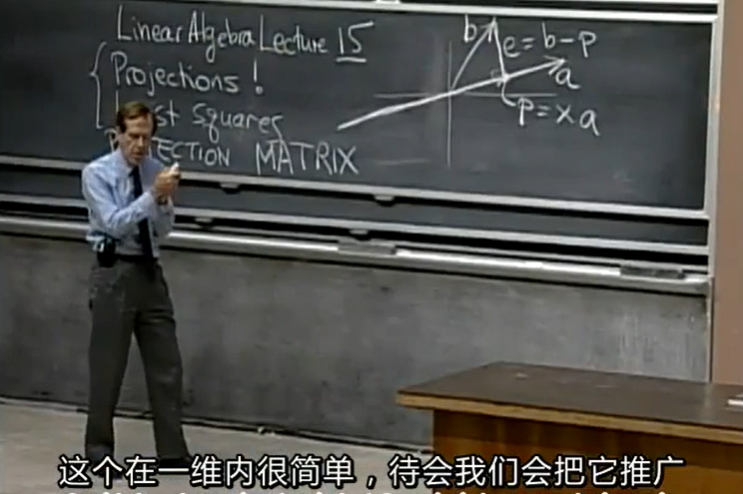 Linear Algebra Lecture 15
Projections!
Squares
MATRIX
b
e = b - p
a
p = x a
这个在一维内很简单，待会我们会把它推广